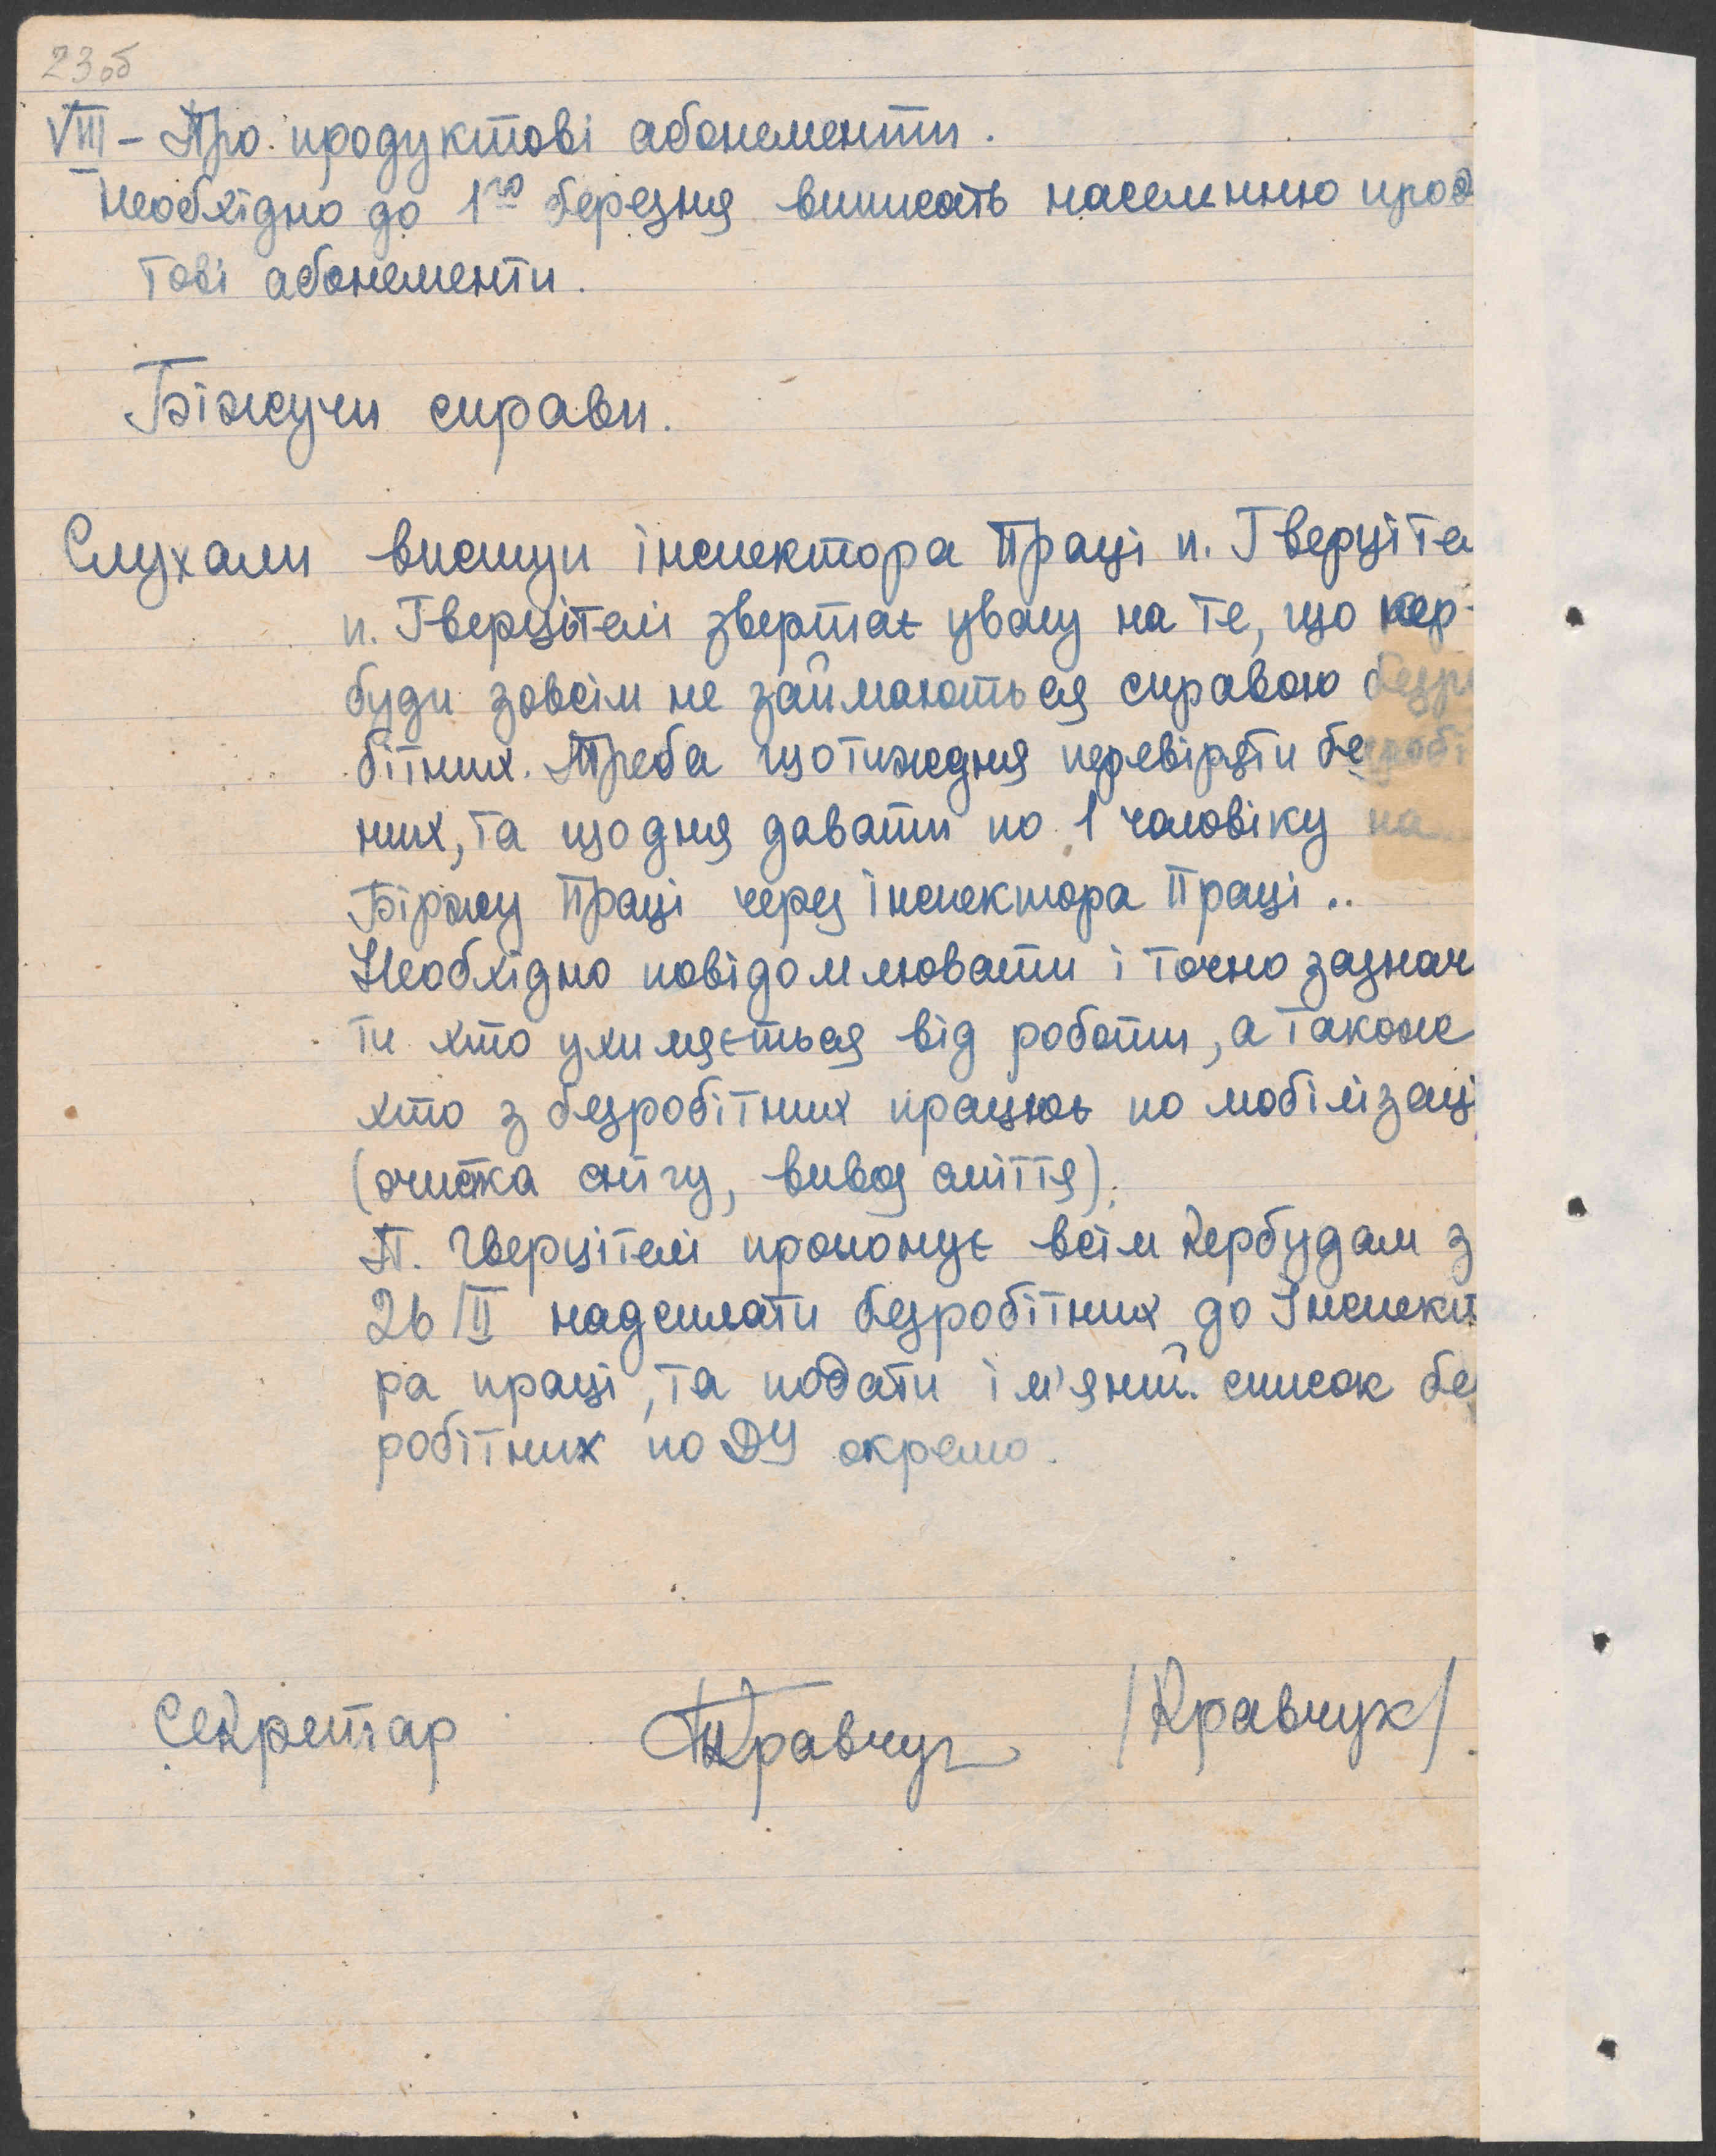 23об
VIII - Про продуктові абонементи.
Необхідно до 1го березня виписать населенню прод
тові абонементи.
Біжучи справи.
Слухали виступ інспектора Праці п. Гверціте
п. Гверцітелі звертає увагу на те, що кер-
буди зовсім не займаються справою безро
бітних. Треба щотиждня перевіряти безробі
них, та щодня давати по 1 чоловіку на
Біржу Праці через інспектора Праці..
Необхідно повідомлювати і точно зазнач
ти хто ухиляється від роботи, а також
хто з безробітних працює по мобілізаці
(очистка снігу, вивоз сміття).
П. Гверцітелі пропонує всім Кербудам з
26/II надсилати безробітних до Інспект
ра праці, та подати ім'яний список бе
робітних по ДУ окремо.
Секретар Кравчук /Кравчук/.